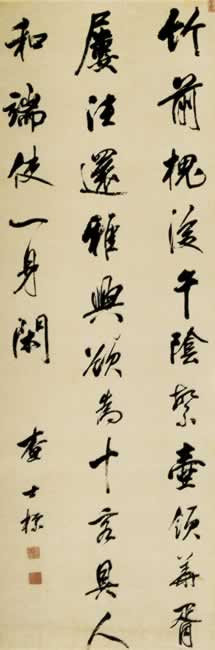 竹前槐後午陰繁壺領華胥
屢往還雅興欲為十客具人
和端使一身閑
查士標